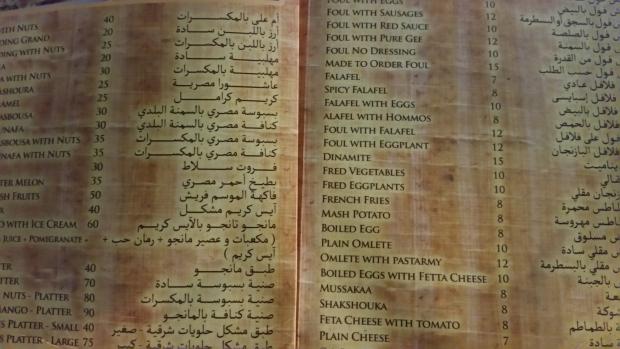 WITH NUTS 40 أم على بالمكسرات
DING GRAND 20 أرز باللبن سادة
DING WITH NUTS 30 أرز باللبن بالمكسرات
20 مهلبية سادة
A WITH NUTS 30 مهلبية بالمكسرات
ASHOURA 25 عاشورا مصرية
AMEL 25 كريم كرامل
BASBOUSA 30 بسبوسة مصري بالسمنة البلدي
UNAFA 30 كنافة مصري بالسمنة البلدي
BASBOUSA WITH NUTS 35 بسبوسة مصري بالمكسرات
UNAFA WITH NUTS 35 كنافة مصري بالمكسرات
30 فروت سلاط
TER MELON 35 بطيخ أحمر مصري
SH FRUITS 50 فاكهة الموسم فريش
40 آيس كريم مشكل
O WITH ICE CREAM 60 مانجو تانجو بالآيس كريم
JUICE + POMIGRANATE + ( مكعبات و عصير مانجو + رمان حب +
آيس كريم )
TER 40 طبق مانجو
TTER 70 صنية بسبوسة سادة
NUTS - PLATTER 80 صنية بسبوسة بالمكسرات
MANGO - PLATTER 90 صنية كنافة بالمانجو
TS PLATTER - SMALL 40 طبق مشكل حلويات شرقية - صغير
S PLATTER - LARGE 75 طبق مشكل حلويات شرقية - كبير
FOUL WITH EGGS 10 فول بالبيض
FOUL WITH SAUSAGES 12 فول بالسجق أو البسطرمة
FOUL WITH RED SAUCE 10 فول بالصلصة
FOUL WITH PURE GEF 12 فول بالسمنة
FOUL NO DRESSING 10 فول من القدرة
MADE TO ORDER FOUL 15 فول حسب الطلب
FALAFEL 7 فلافل عادي
SPICY FALAFEL 8 فلافل إسبايسى
FALAFEL WITH EGGS 10 فلافل بالبيض
ALAFEL WITH HOMMOS 8 فلافل بالحمص
FOUL WITH FALAFEL 12 فول على فلافل
FOUL WITH EGGPLANT 12 فول بالباذنجان
DINAMITE 15 ديناميت
FRED VEGETABLES 10
FRED EGGPLANTS 10 باذنجان مقلي
FRENCH FRIES 8 بطاطس محمرة
MASH POTATO 8 بطاطس مهروسة
BOILED EGG 8 بيض مسلوق
PLAIN OMLETE 8 بيض مقلي سادة
OMLETE WITH PASTARMY 12 بيض مقلي بالبسطرمة
BOILED EGGS WITH FETTA CHEESE 10 بالجبنة
MUSSAKAA 8
SHAKSHOUKA 8 شكشوكة
FETA CHEESE WITH TOMATO 8 بالطماطم
PLAIN CHEESE 7 سادة